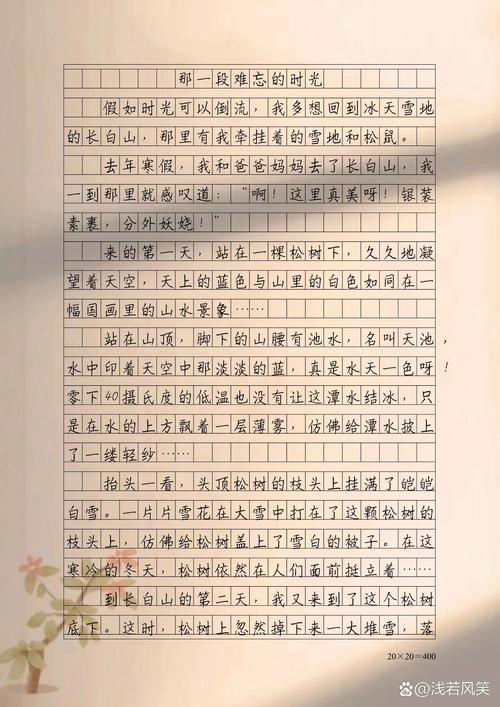 那一段难忘的时光
假如时光可以倒流，我多想回到冰天雪地
的长白山，那里有我牵挂着的雪地和松鼠。
去年寒假，我和爸爸妈妈去了长白山，我
一到那里就感叹道：“啊！这里真美呀！银装
素裹，分外妖娆！”
来的第一天，站在一棵松树下，久久地凝
望着天空，天上的蓝色与山里的白色如同在一
幅国画里的山水景象……
站在山顶，脚下的山腰有池水，名叫天池，
水中印着天空中那淡淡的蓝，真是水天一色呀！
零下40摄氏度的低温也没有让这潭水结冰，只
是在水的上方飘着一层薄雾，仿佛给潭水披上
了一缕轻纱……
抬头一看，头顶松树的枝头上挂满了皑皑
白雪。一片片雪花在大雪中打在了这颗松树的
枝头上，仿佛给松树盖上了雪白的被子。在这
寒冷的冬天，松树依然在人们面前挺立着……
到长白山的第二天，我又来到了这个松树
底下。这时，松树上忽然掉下来一大堆雪，落
20×20=400
浅若风笑